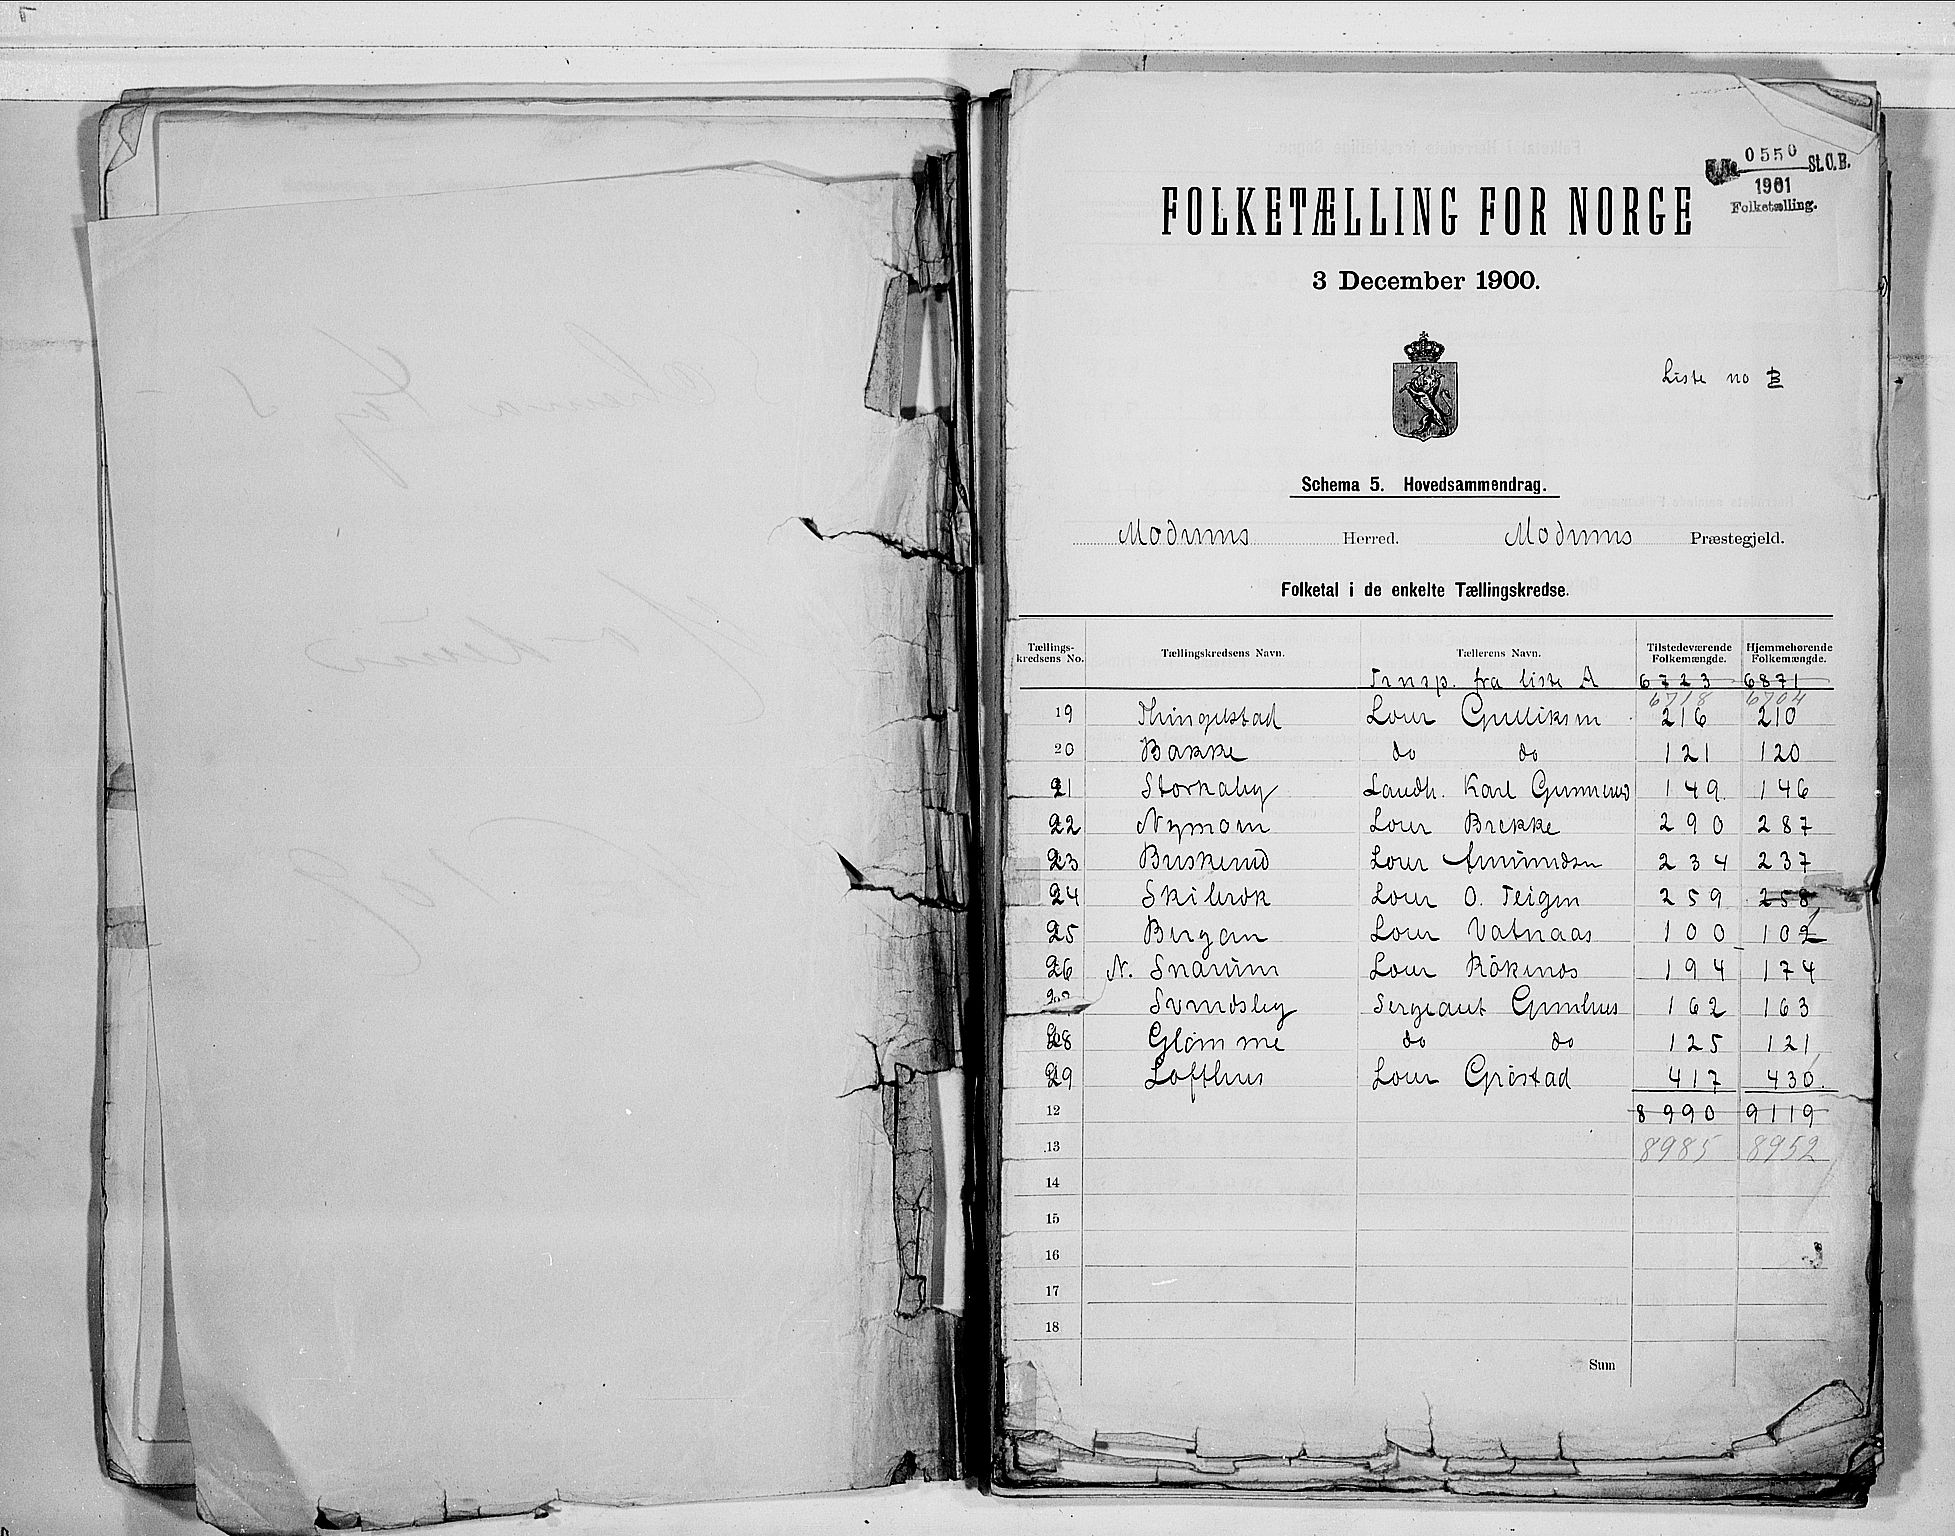 0550
1901 St.C.B.
Folketælling.
FOLKETÆLLING FOR NORGE
3 December 1900.
Liste no B
Schema 5. Hovedsammendrag.
Modums Herred. Modums Præstegjeld.
Folketal i de enkelte Tællingskredse.
Tællings-kredsens No. Tællingskredsens Navn. Tællerens Navn. Tilstedeværende Folkemængde. Hjemmehørende Folkemængde.
Transp. fra liste A 6723 6871
6718 6704
19 Thingelstad Lær Gulliksen 216 210
20 Bakke do do 121 120
21 Storkaby Landh. Karl 149 146
22 Nymoen Lær Brekke 290 287
23 Buskerud Lær Amundsen 234 237
24 Skibræk Lær O. Teigen 259 258
25 Bergan Lær Vatnaas 100 102
26 N. Snarum Lær 194 174
Sergeant 162 163
28 Glømme do do 125 121
29 Lofthus Lær Grøstad 417 430
12 8990 9119
13 8985 8952
14
15
16
17
18
Sum